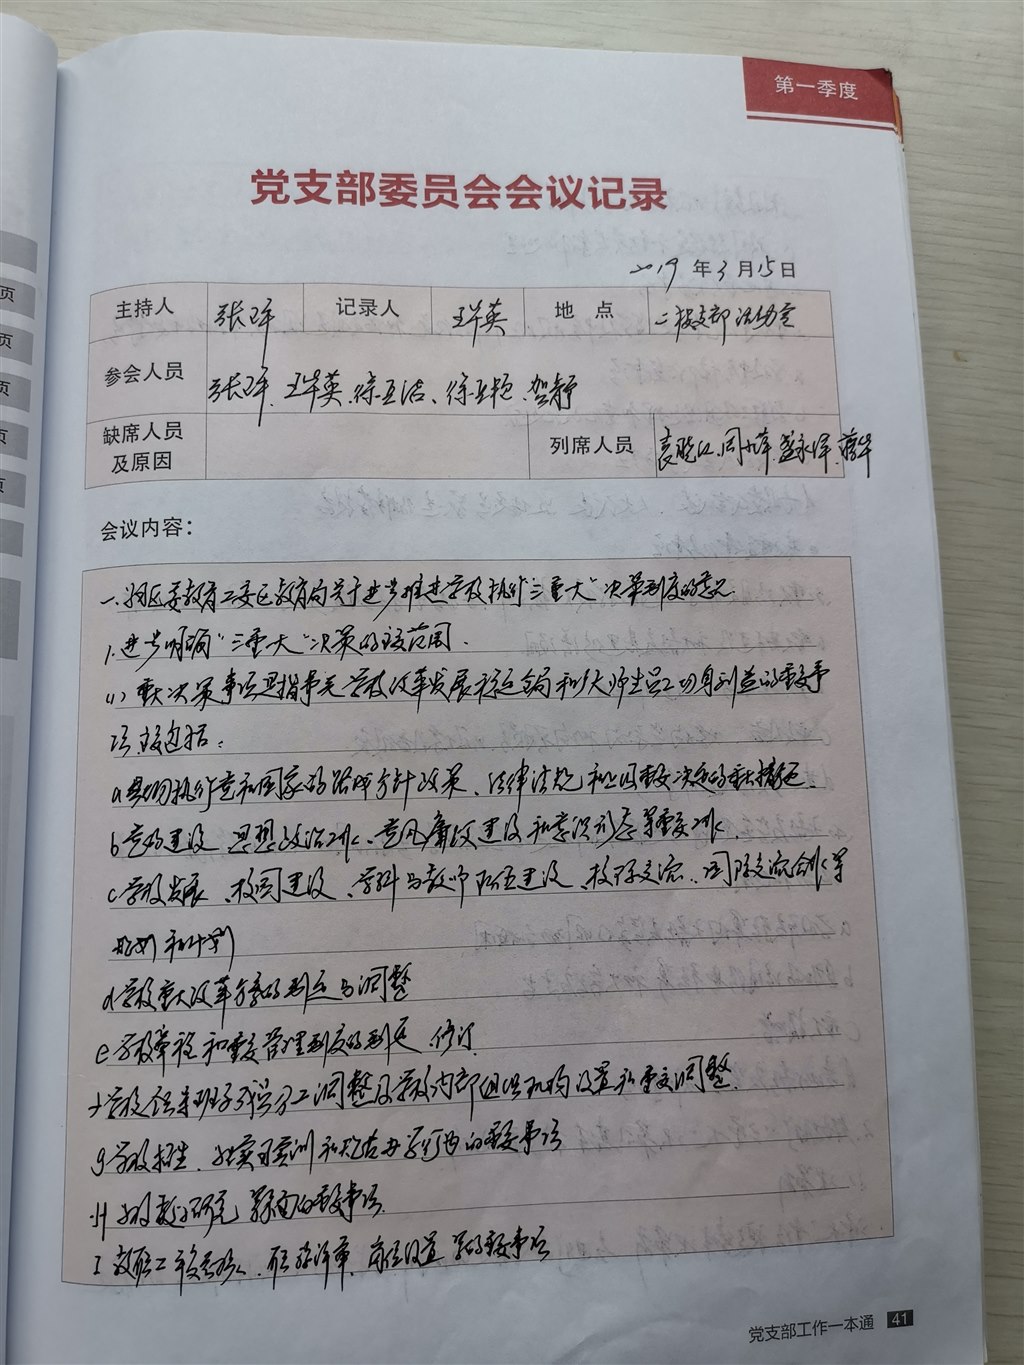 第一季度
党支部委员会会议记录
2019年3月15日
主持人 张 记录人 王 英 地点 二校支部活动室
参会人员 张 王 英、徐 、徐 、贺静
缺席人员及原因 列席人员 袁晓 、周 萍、 永泽、蒋华
会议内容：
一、 区委教育工委区教育局关于进一步推进学校执行“三重大”决策制度的意见.
1.进一步明确“三重大”决策的 范围.
(1)重大决策事项是指事关学校改革发展稳定全局和广大师生员工切身利益的重要事
项,主要包括:
a 执行党和国家的路线方针政策、法律法规和上级重要决定的重大措施.
b党的建设、思想政治工作、党风廉政建设和意识形态等重要工作.
c学校发展、校园建设、学科与教师队伍建设、校际交流、国际交流合作等
规划和计划
d学校重大改革方案的制定与调整
e学校章程和重要管理制度的制定、修订
f学校领导班子成员分工调整及学校内部组织机构设置和重要调整.
g学校招生、 实习实训和 办学行为的重要事项
H学校教学研究等方面的重要事项.
I教职工 考核、职称评审、岗位设置等的重要事项
党支部工作一本通 41
页
页
页
页
页